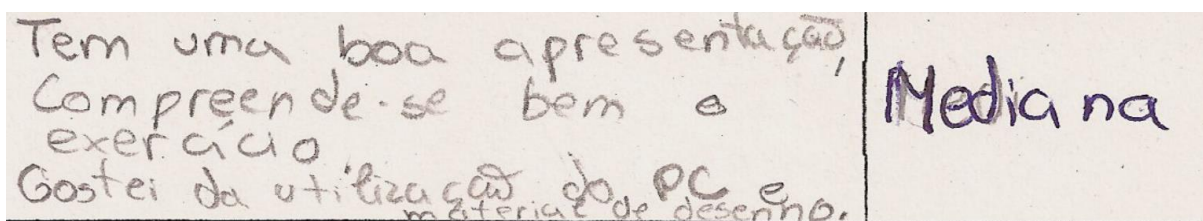 Tem uma boa apresentação,
Compreende-se bem o
exercício.
Gostei da utilização do PC e
material de desenho.
Mediana